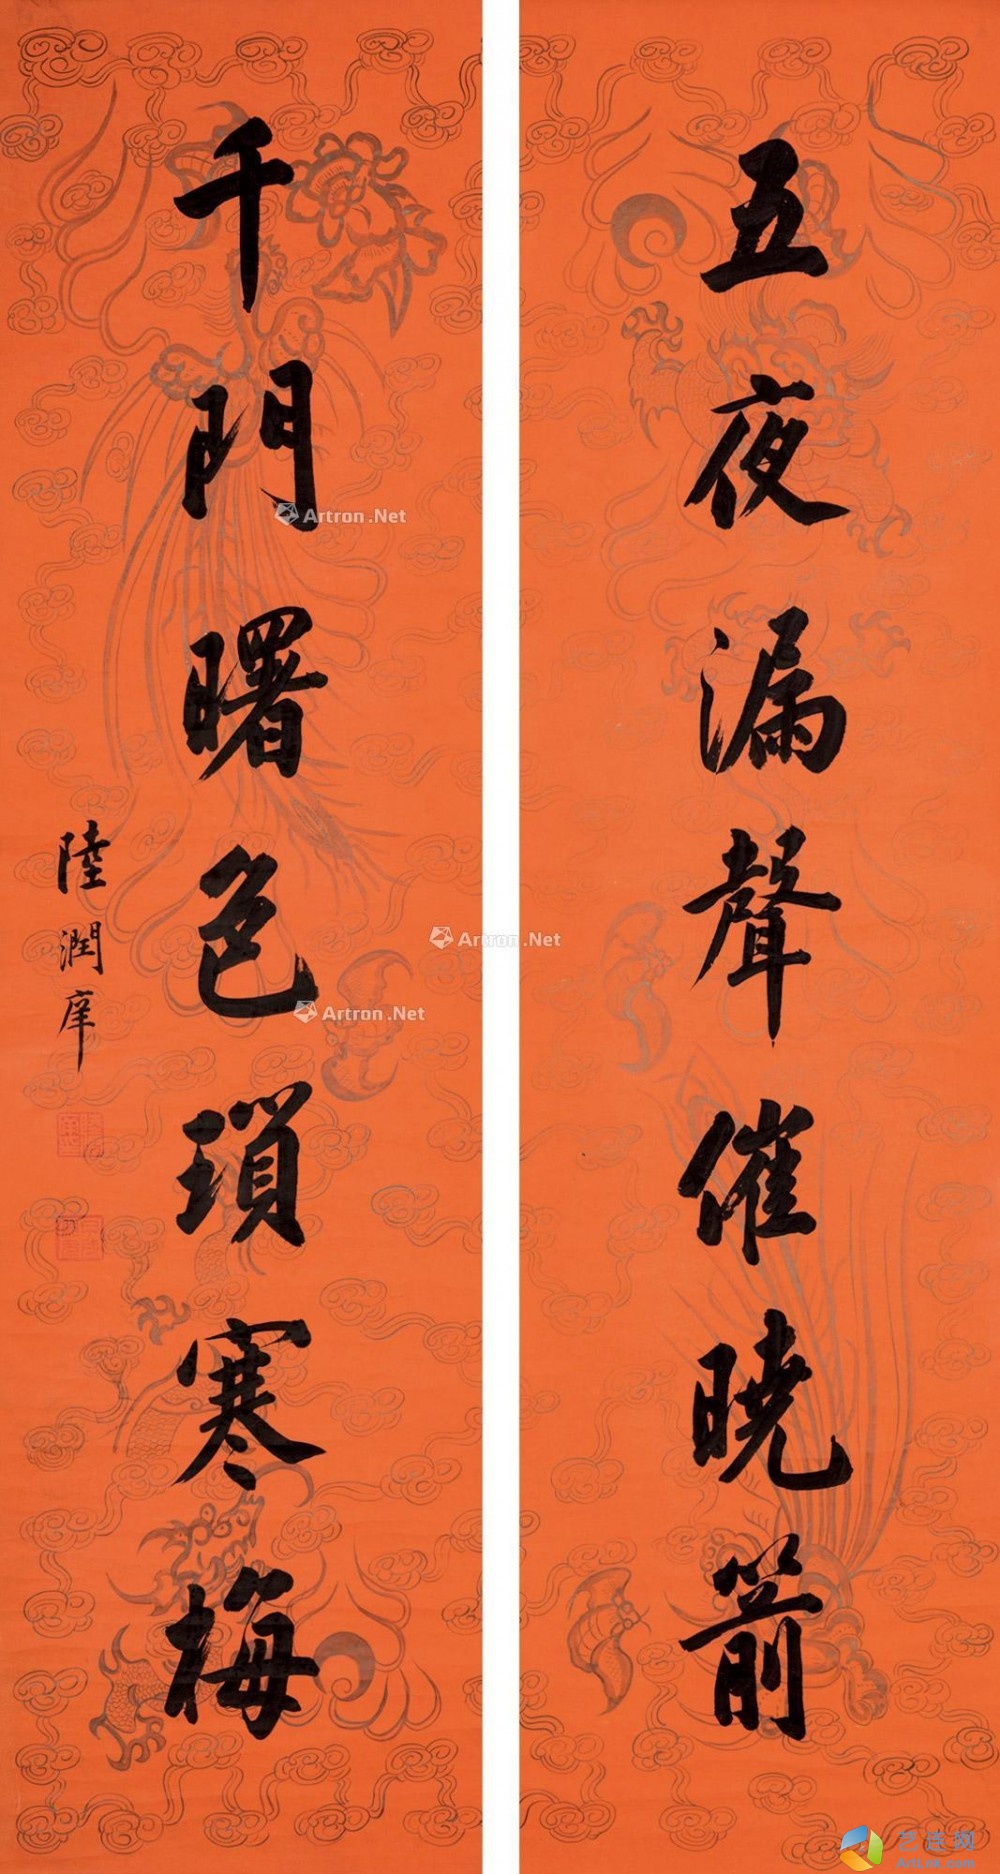 五夜漏聲催曉箭
千門曙色瑣寒梅
陸潤庠
Artron.Net
Artron.Net
Artron.Net
艺连网
ArtLnk.com